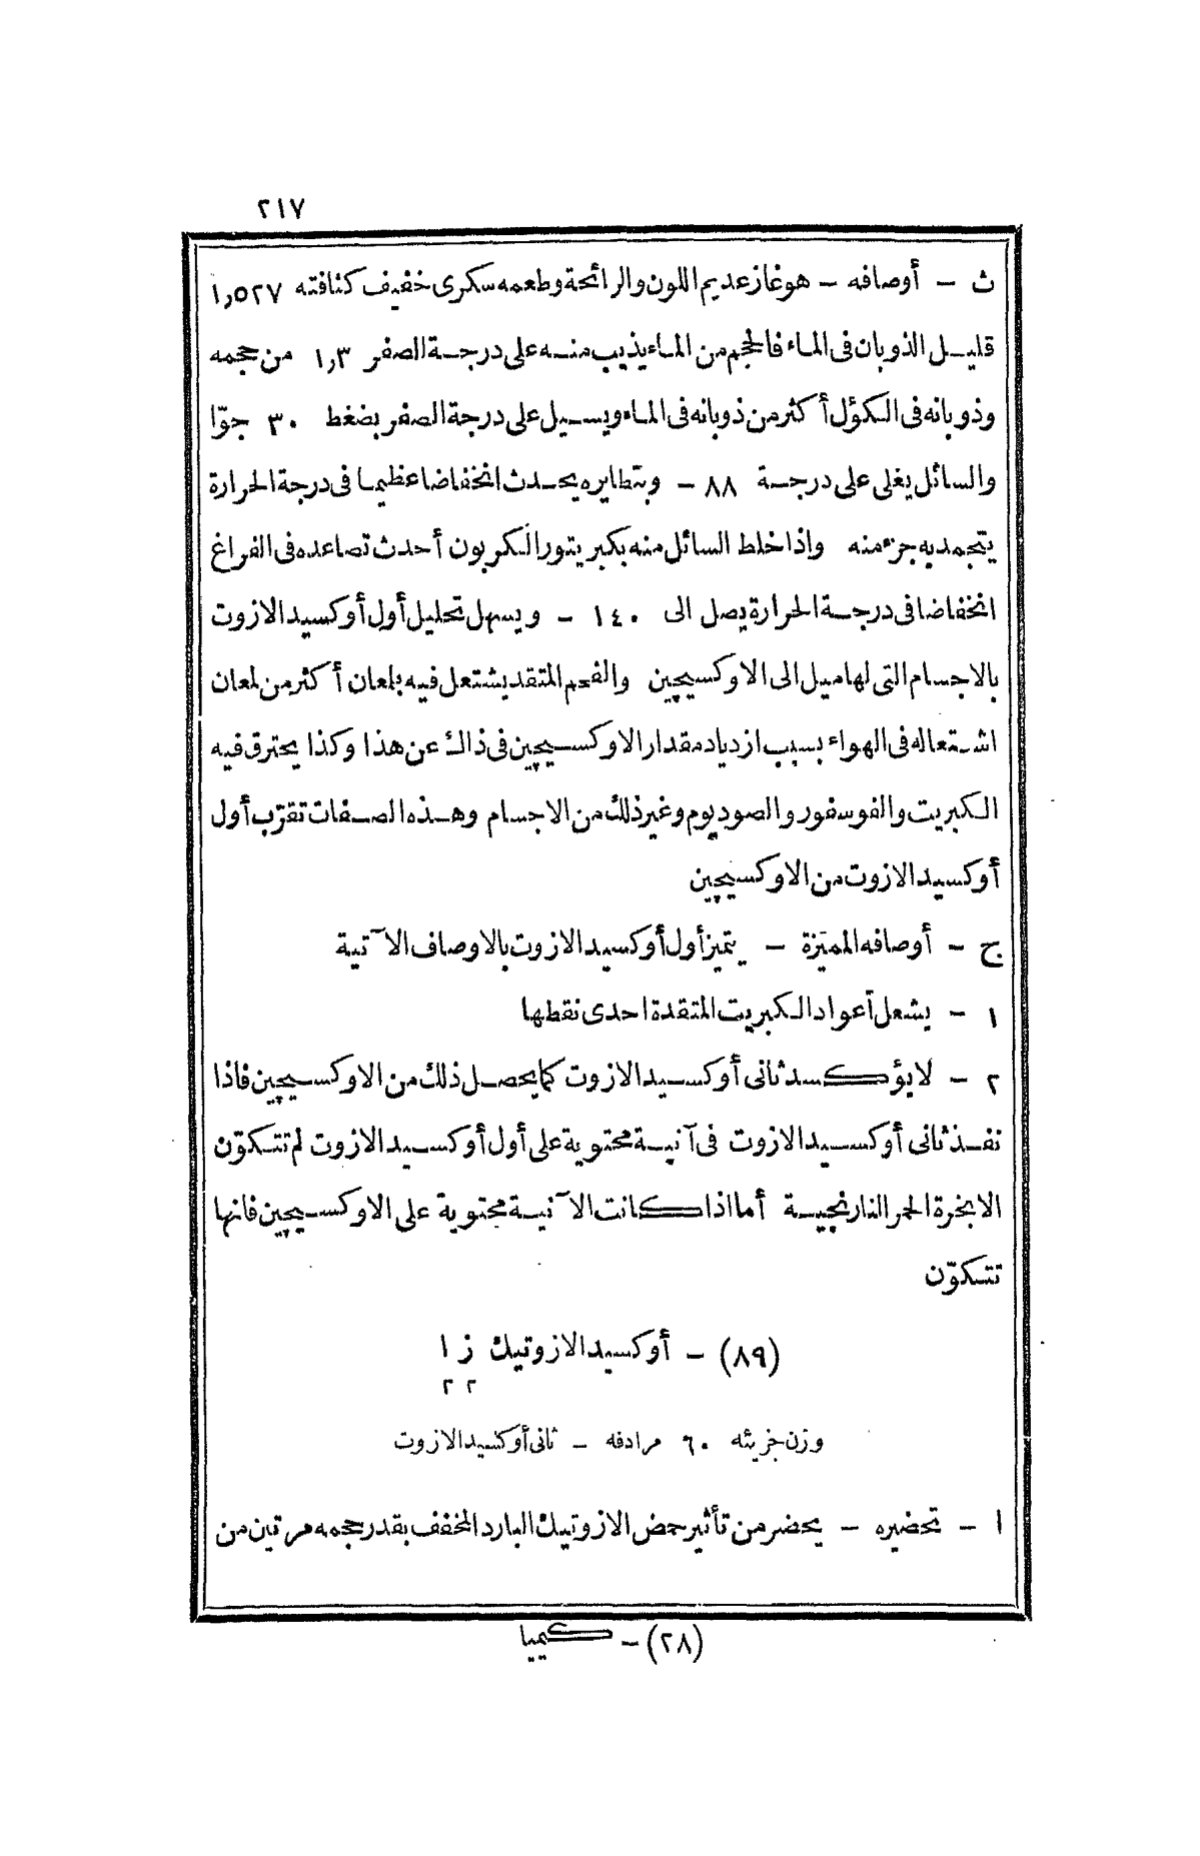 ٢١٧
ث - أوصافه - هو غاز عديم اللون والرائحة وطعمه سكرى خفيف كثافته ١٫٥٢٧
قليل الذوبان فى الماء فالحجم من الماء يذيب منه على درجة الصفر ١٫٣ من حجمه
وذوبانه فى الكؤل أكثر من ذوبانه فى الماء ويسيل على درجة الصفر بضغط ٣٠ جوّا
والسائل يغلى على درجة ٨٨ - وبتطايره يحدث انخفاضا عظيما فى درجة الحرارة
يتجمد به جزء منه واذا خلط السائل منه بكبريتور الكربون أحدث تصاعده فى الفراغ
انخفاضا فى درجة الحرارة يصل الى ١٤٠ - ويسهل تحليل أول أوكسيد الازوت
بالاجسام التى لها ميل الى الاوكسيچين والفحم المتقد يشتعل فيه بلعان أكثر من لمعان
اشتعاله فى الهواء بسبب ازدياد مقدار الاوكسيچين فى ذاك عن هذا وكذا يحترق فيه
الكبريت والفوسفور والصوديوم وغير ذلك من الاجسام وهذه الصفات تقرّب أول
أوكسيد الازوت من الاوكسيچين
ج - أوصافه المميزة - يتميز أول أوكسيد الازوت بالاوصاف الآتية
١ - يشعل أعواد الكبريت المتقدة احدى نقطها
٢ - لا يؤكسد ثانى أوكسيد الازوت كما يحصل ذلك من الاوكسيچين فاذا
نفذ ثانى أوكسيد الازوت فى آنية محتوية على أول أوكسيد الازوت لم تتكوّن
الابخرة الحمر النارنجية أما اذا كانت الآنية محتوية على الاوكسيچين فانها
تتكوّن
(٨٩) - أوكسيد الازوتيك ز ا
٢ ٢
وزن جزيئه ٦٠ مرادفه - ثانى أوكسيد الازوت
ا - تحضيره - يحضر من تأثير حمض الازوتيك البارد المخفف بقدر حجمه مرتين من
(٢٨) - كيميا